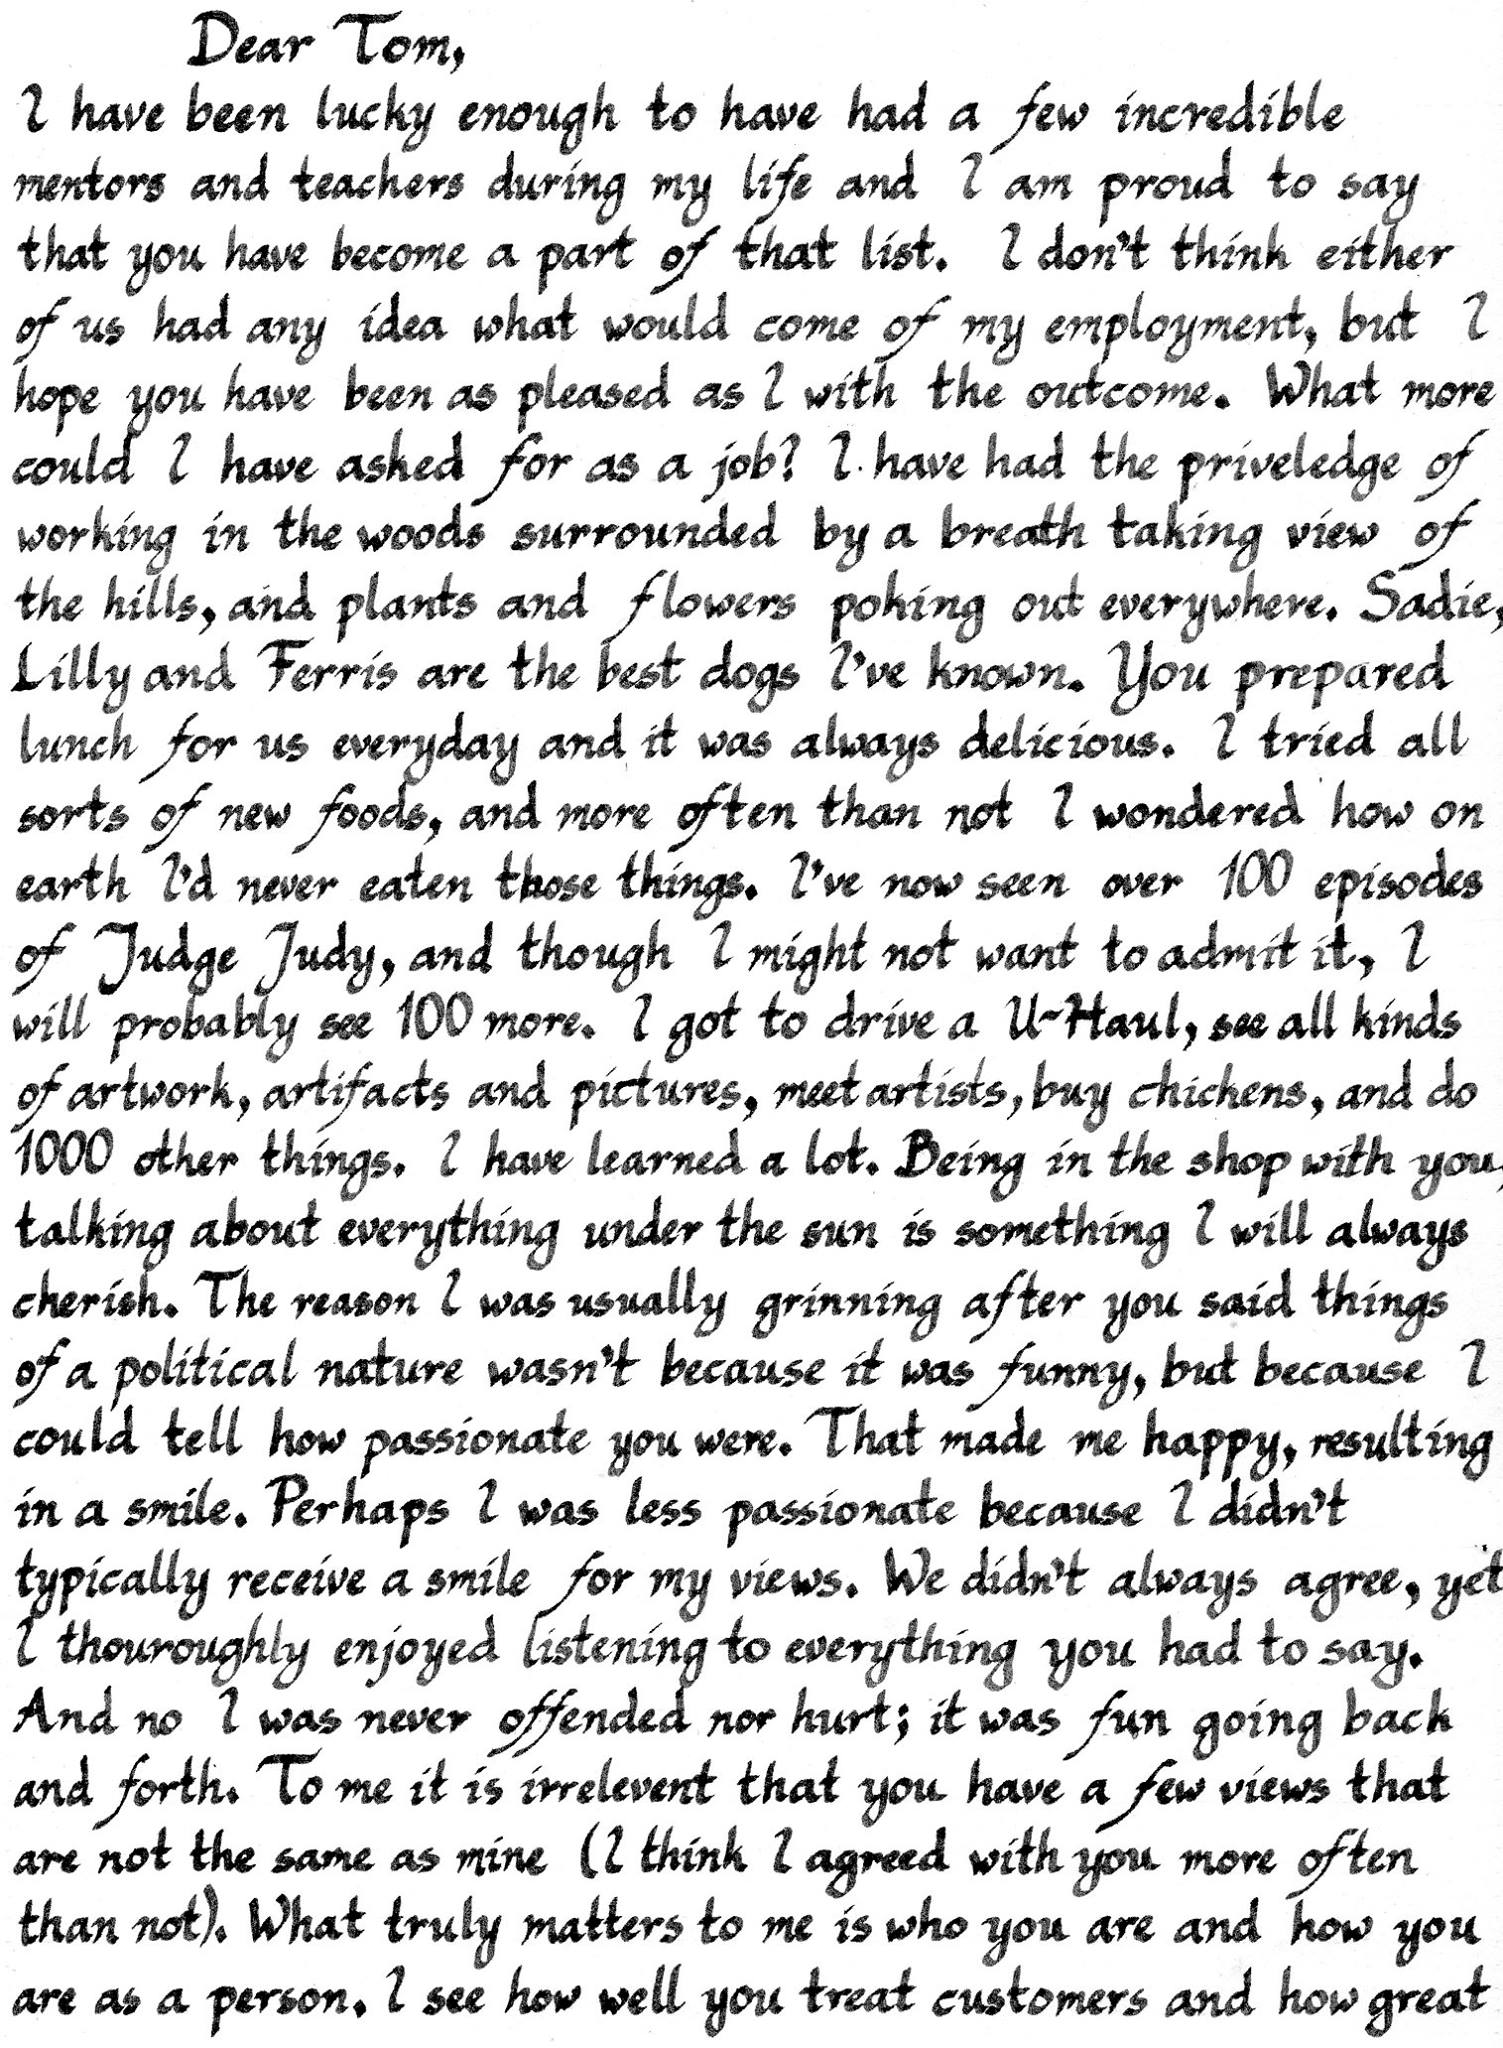 Dear Tom,
I have been lucky enough to have had a few incredible
mentors and teachers during my life and I am proud to say
that you have become a part of that list. I don't think either
of us had any idea what would come of my employment, but I
hope you have been as pleased as I with the outcome. What more
could I have asked for as a job? I have had the priveledge of
working in the woods surrounded by a breath taking view of
the hills, and plants and flowers poking out everywhere. Sadie,
Lilly and Ferris are the best dogs I've known. You prepared
lunch for us everyday and it was always delicious. I tried all
sorts of new foods, and more often than not I wondered how on
earth I'd never eaten those things. I've now seen over 100 episodes
of Judge Judy, and though I might not want to admit it, I
will probably see 100 more. I got to drive a U-Haul, see all kinds
of artwork, artifacts and pictures, meet artists, buy chickens, and do
1000 other things. I have learned a lot. Being in the shop with you,
talking about everything under the sun is something I will always
cherish. The reason I was usually grinning after you said things
of a political nature wasn't because it was funny, but because I
could tell how passionate you were. That made me happy, resulting
in a smile. Perhaps I was less passionate because I didn't
typically receive a smile for my views. We didn't always agree, yet
I thouroughly enjoyed listening to everything you had to say.
And no I was never offended nor hurt; it was fun going back
and forth. To me it is irrelevent that you have a few views that
are not the same as mine (I think I agreed with you more often
than not). What truly matters to me is who you are and how you
are as a person. I see how well you treat customers and how great